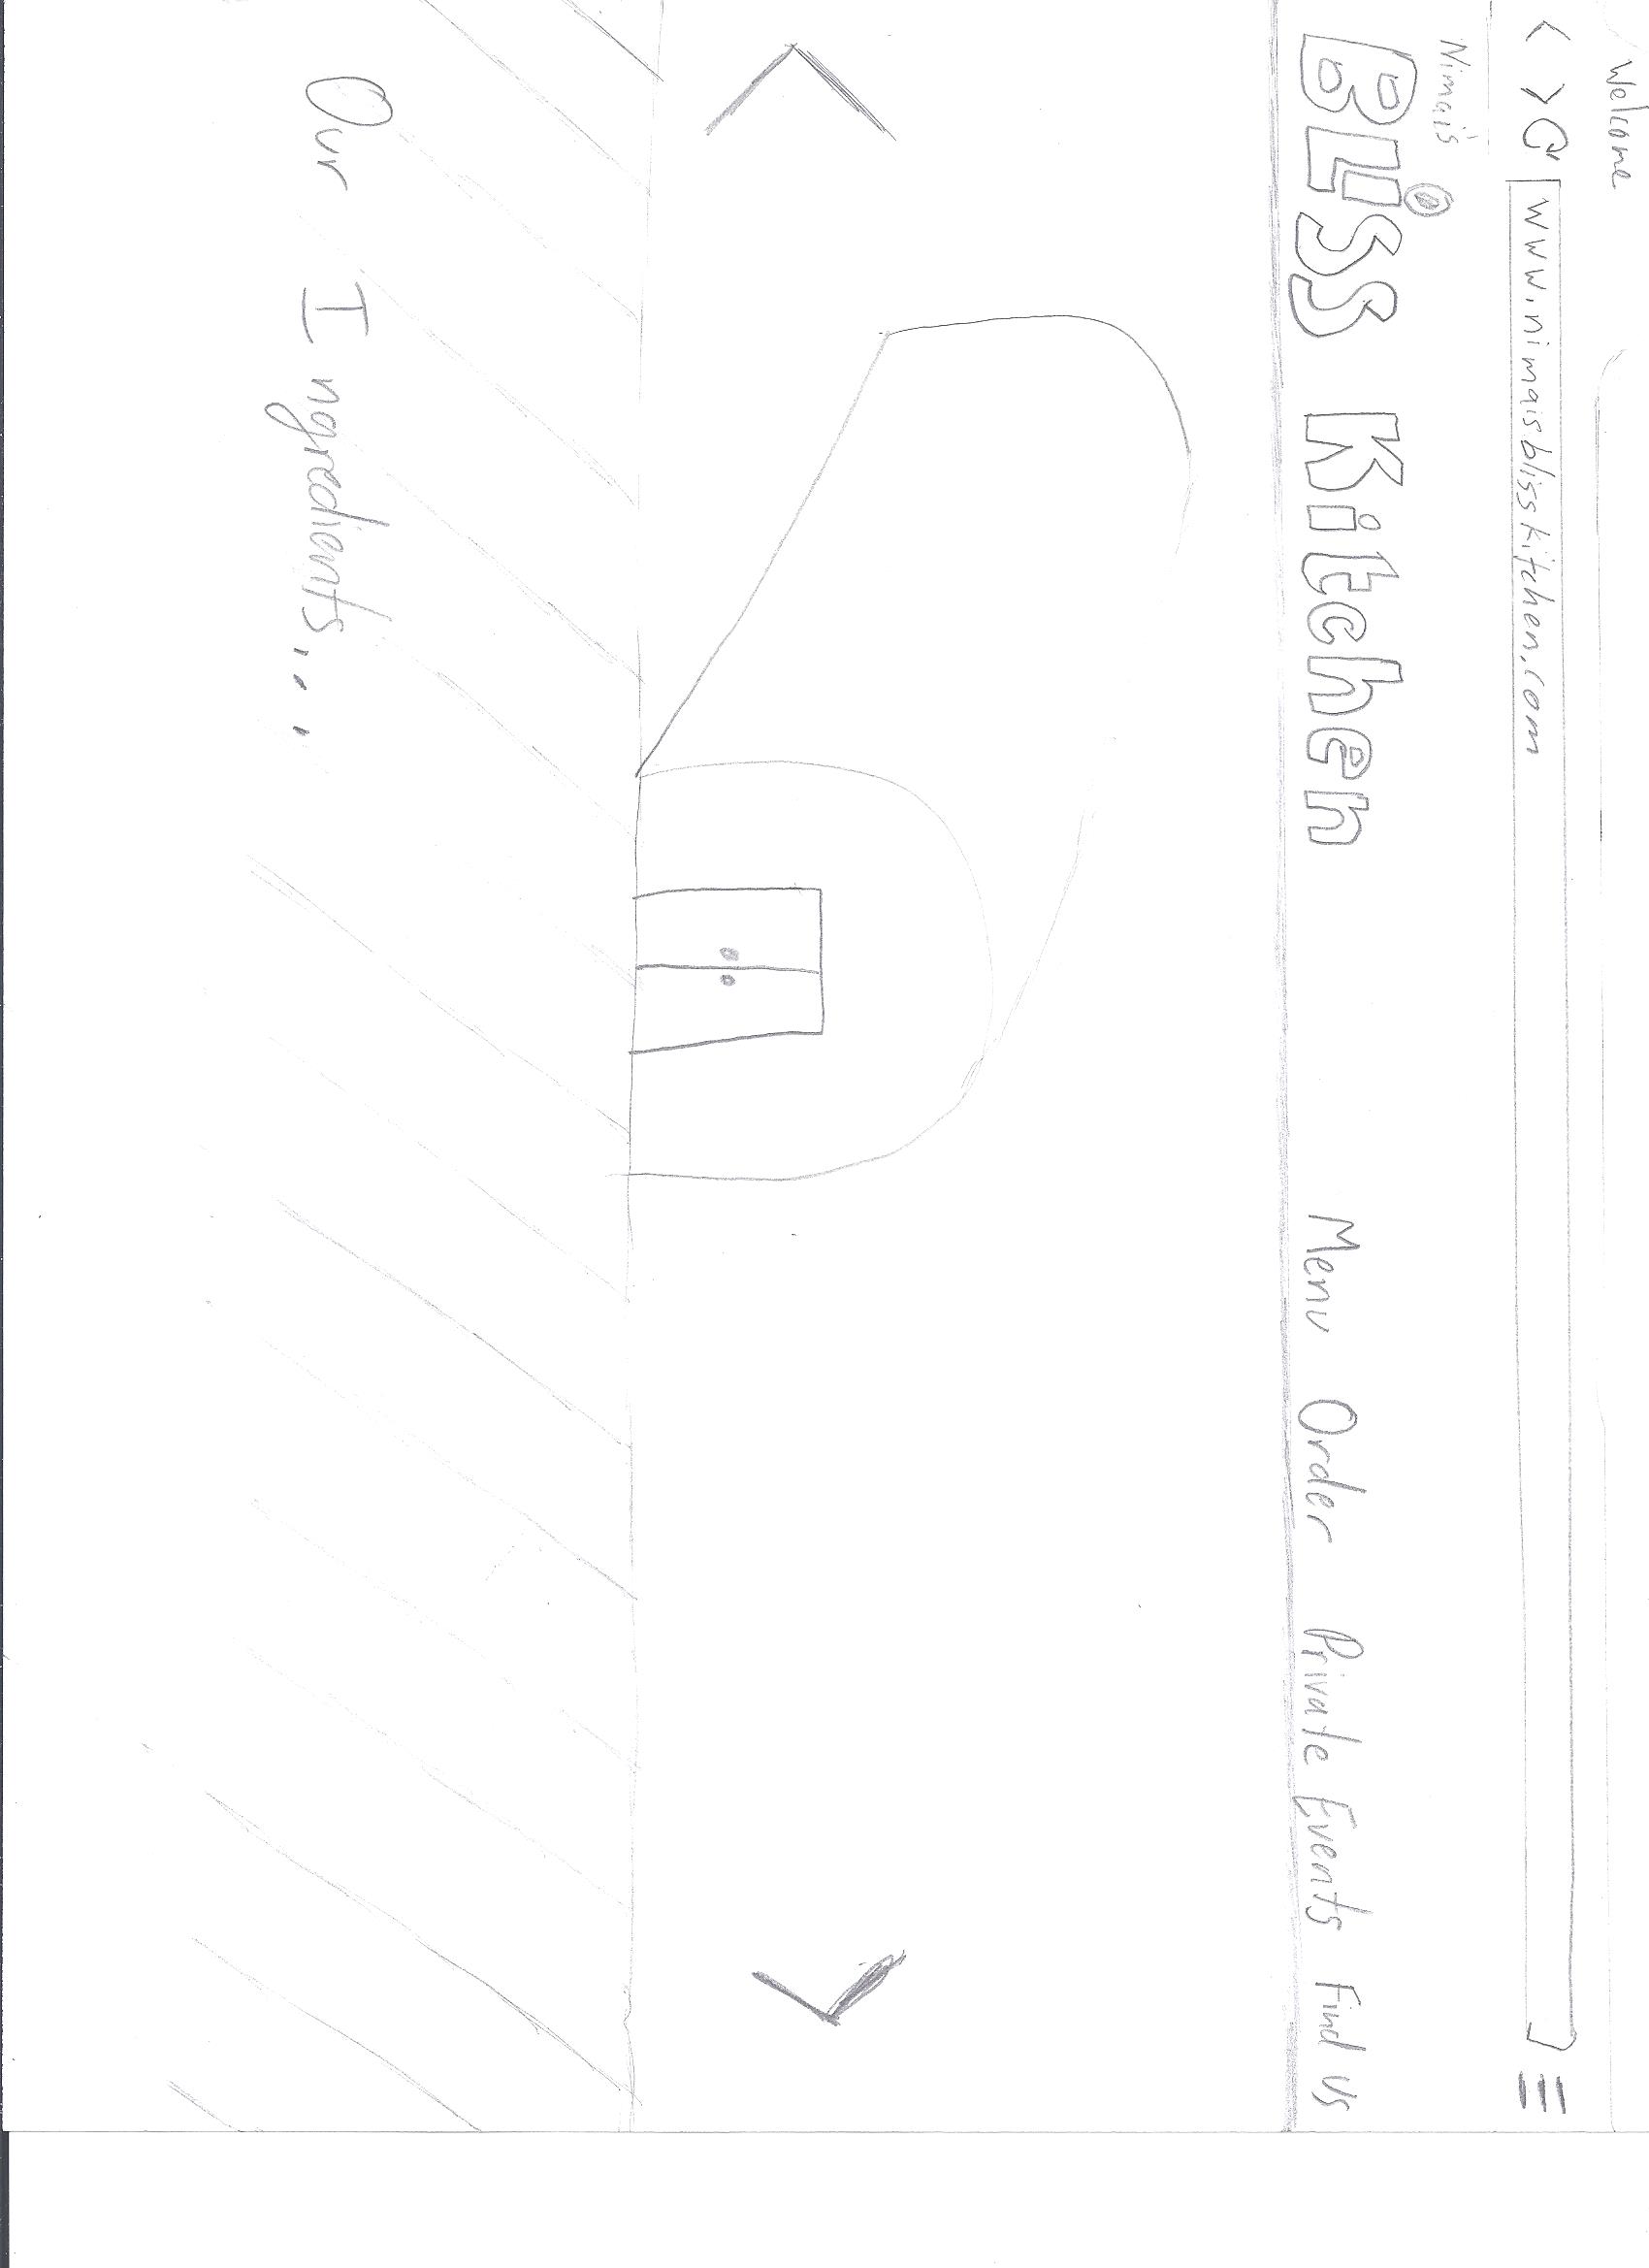 Welcome
www.nimaisblisskitchen.com
Nimai's
BLiss Kitchen
Menu Order Private Events Find Us
Our Ingredients...